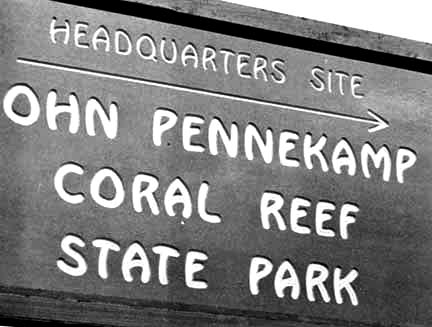 HEADQUARTERS SITE
OHN PENNEKAMP
CORAL REEF
STATE PARK